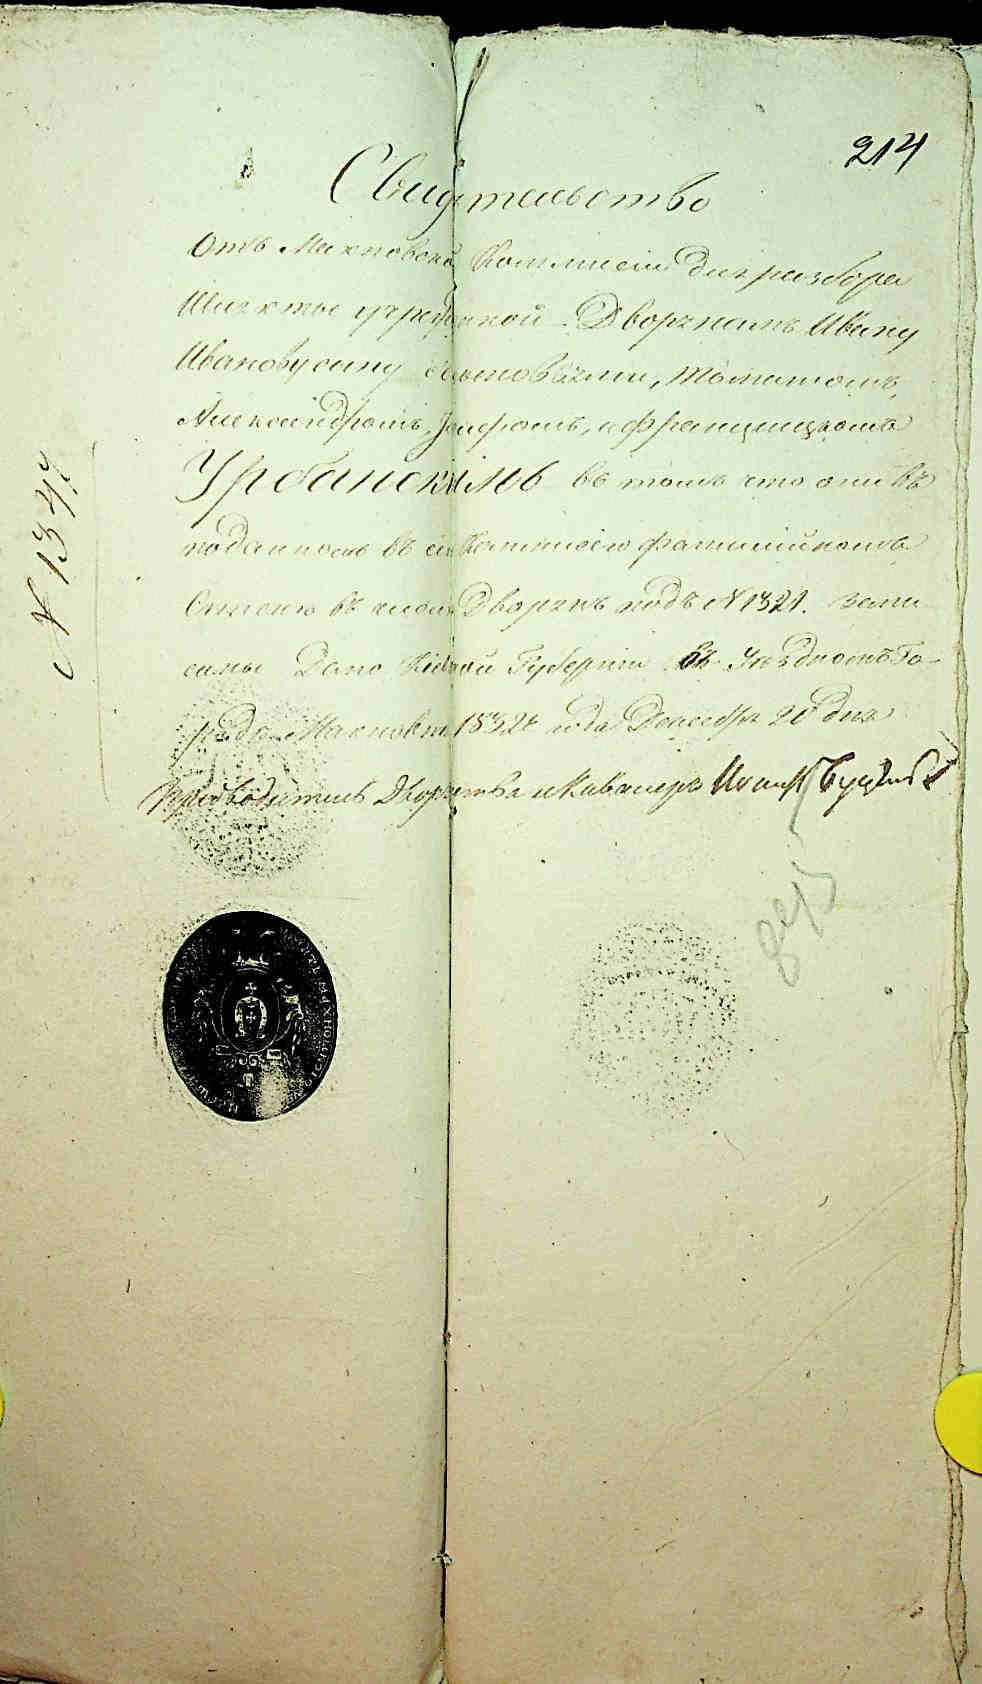 214
Свидѣтельство
Отъ Махновской Коммисіи для разбора
Шляхты учрежденной Дворянамъ Ивану
Иванову сыну съ сыновьями, Томашомъ,
Александромъ, Іозефомъ, и Францишкомъ
Урбанскимъ въ томъ что они въ
поданномъ въ сію Коммисію Фамилійномъ
Списке въ числе Дворянъ подъ N 1321. запи
саны Дано Кіевской Губерніи въ Уездномъ Го-
роде Махновке 1832 года Декабря 20 дня
Предводитель Дворянства и Кавалеръ Иванъ
N 1347
845